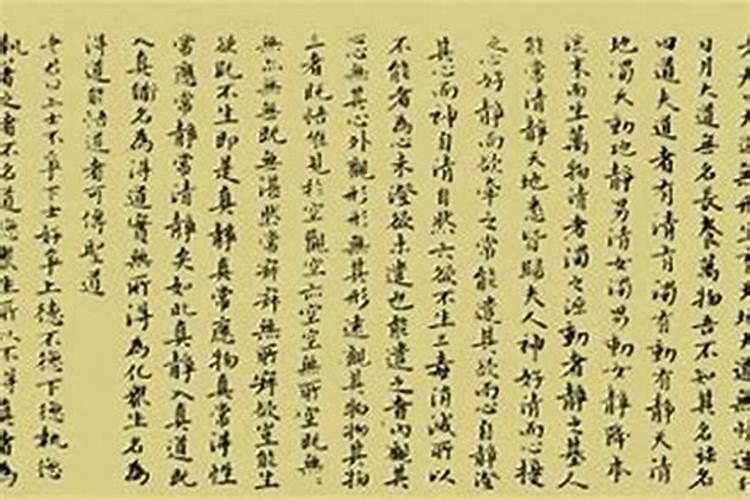 大道無形生育天地大道無情運行
日月大道無名長養萬物吾不知其名強名
曰道夫道者有清有濁有動有靜天清
地濁天動地靜男清女濁男動女靜降本
流末而生萬物清者濁之源動者靜之基人
能常清靜天地悉皆歸夫人神好清而心擾
之心好靜而欲牽之常能遣其欲而心自靜澄
其心而神自清自然六欲不生三毒消滅所以
不能者為心未澄欲未遣也能遣之者內觀其
心無其心外觀形形無其形遠觀其物物其物
三者既悟唯見於空觀空亦空空無所空既無
無亦無無既無湛然常寂寂無所寂欲豈能生
欲既不生即是真靜真常應物真常得性
常應常靜常清靜矣如此真靜入真道既
入真道名為得道實無所得為化眾生名為
得道能悟道者可傳聖道
老君曰上士不爭下士好爭上德不德下德執德
執著之者不名道德眾生所以不得真道者為